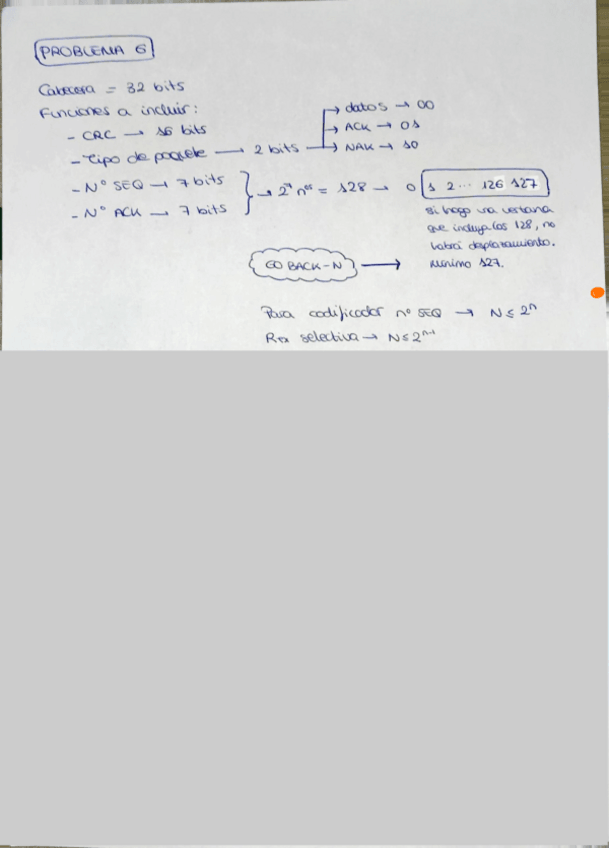 PROBLEMA 6
Cabecera = 32 bits
Funciones a incluir:
- CRC → 16 bits
- Tipo de paquete → 2 bits → datos → 00
→ ACK → 01
→ NAK → 10
- Nº SEQ → 7 bits
- Nº ACK → 7 bits
→ 2⁷ nºs = 128 → 0 1 2 ... 126 127
si hago una ventana
que incluya los 128, no
habrá desplazamiento.
Mínimo 127.
GO BACK-N →
Para codificador nº SEQ → N ≤ 2ⁿ
Rtx selectiva → N ≤ 2ⁿ⁻¹